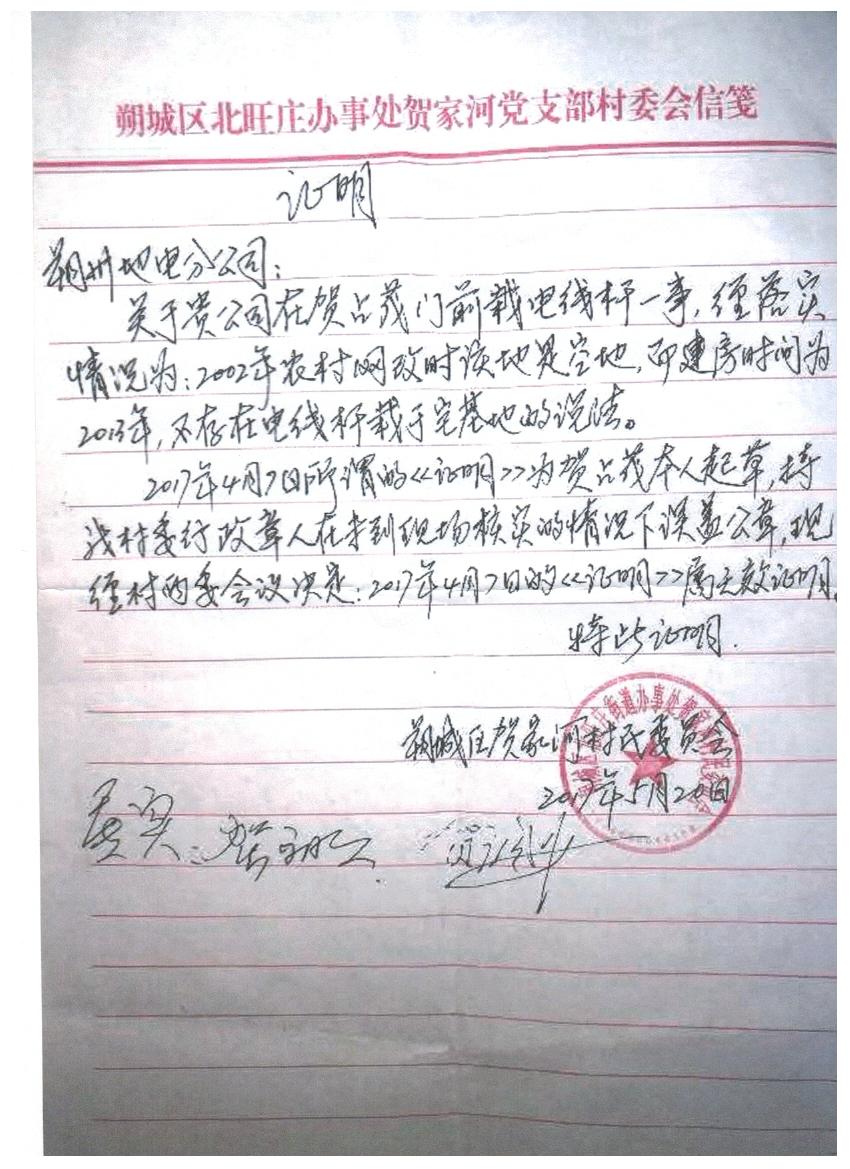 朔城区北旺庄办事处贺家河党支部村委会信笺
证明
朔州地电分公司：
关于贵公司在贺占茂门前栽电线杆一事，经落实
情况为：2002年农村网改时该地是空地，而建房时间为
2013年，不存在电线杆栽于宅基地的说法。
2017年4月7日所谓的<<证明>>为贺占茂本人起草，持
我村委行政章人在未到现场核实的情况下误盖公章，现
经村两委会议决定：2017年4月7日的<<证明>>属无效证明。
特此证明.
朔城区贺家河村民委员会
2017年5月20日
属实